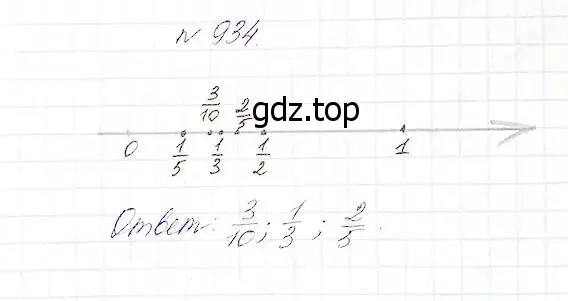 № 934.
3/10 2/5
gdz.top
0 1/5 1/3 1/2 1
Ответ: 3/10; 1/3; 2/5.